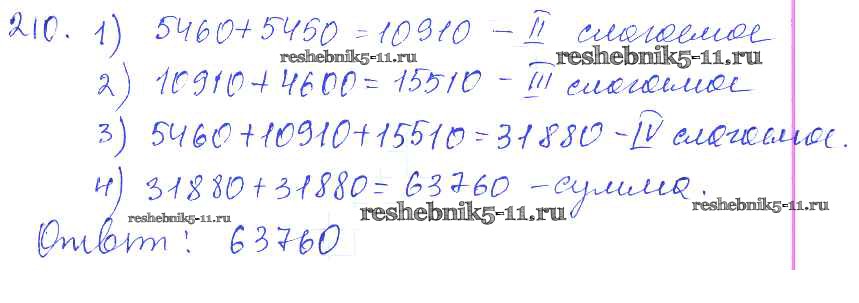 210. 1) 5460+5450=10910 - II слагаемое
reshebnik5-11.ru reshebnik5-11.ru
2) 10910+4600=15510 - III слагаемое
3) 5460+10910+15510=31880 - IV слагаемое.
4) 31880+31880=63760 - сумма.
reshebnik5-11.ru reshebnik5-11.ru reshebnik5-11.ru
Ответ: 63760